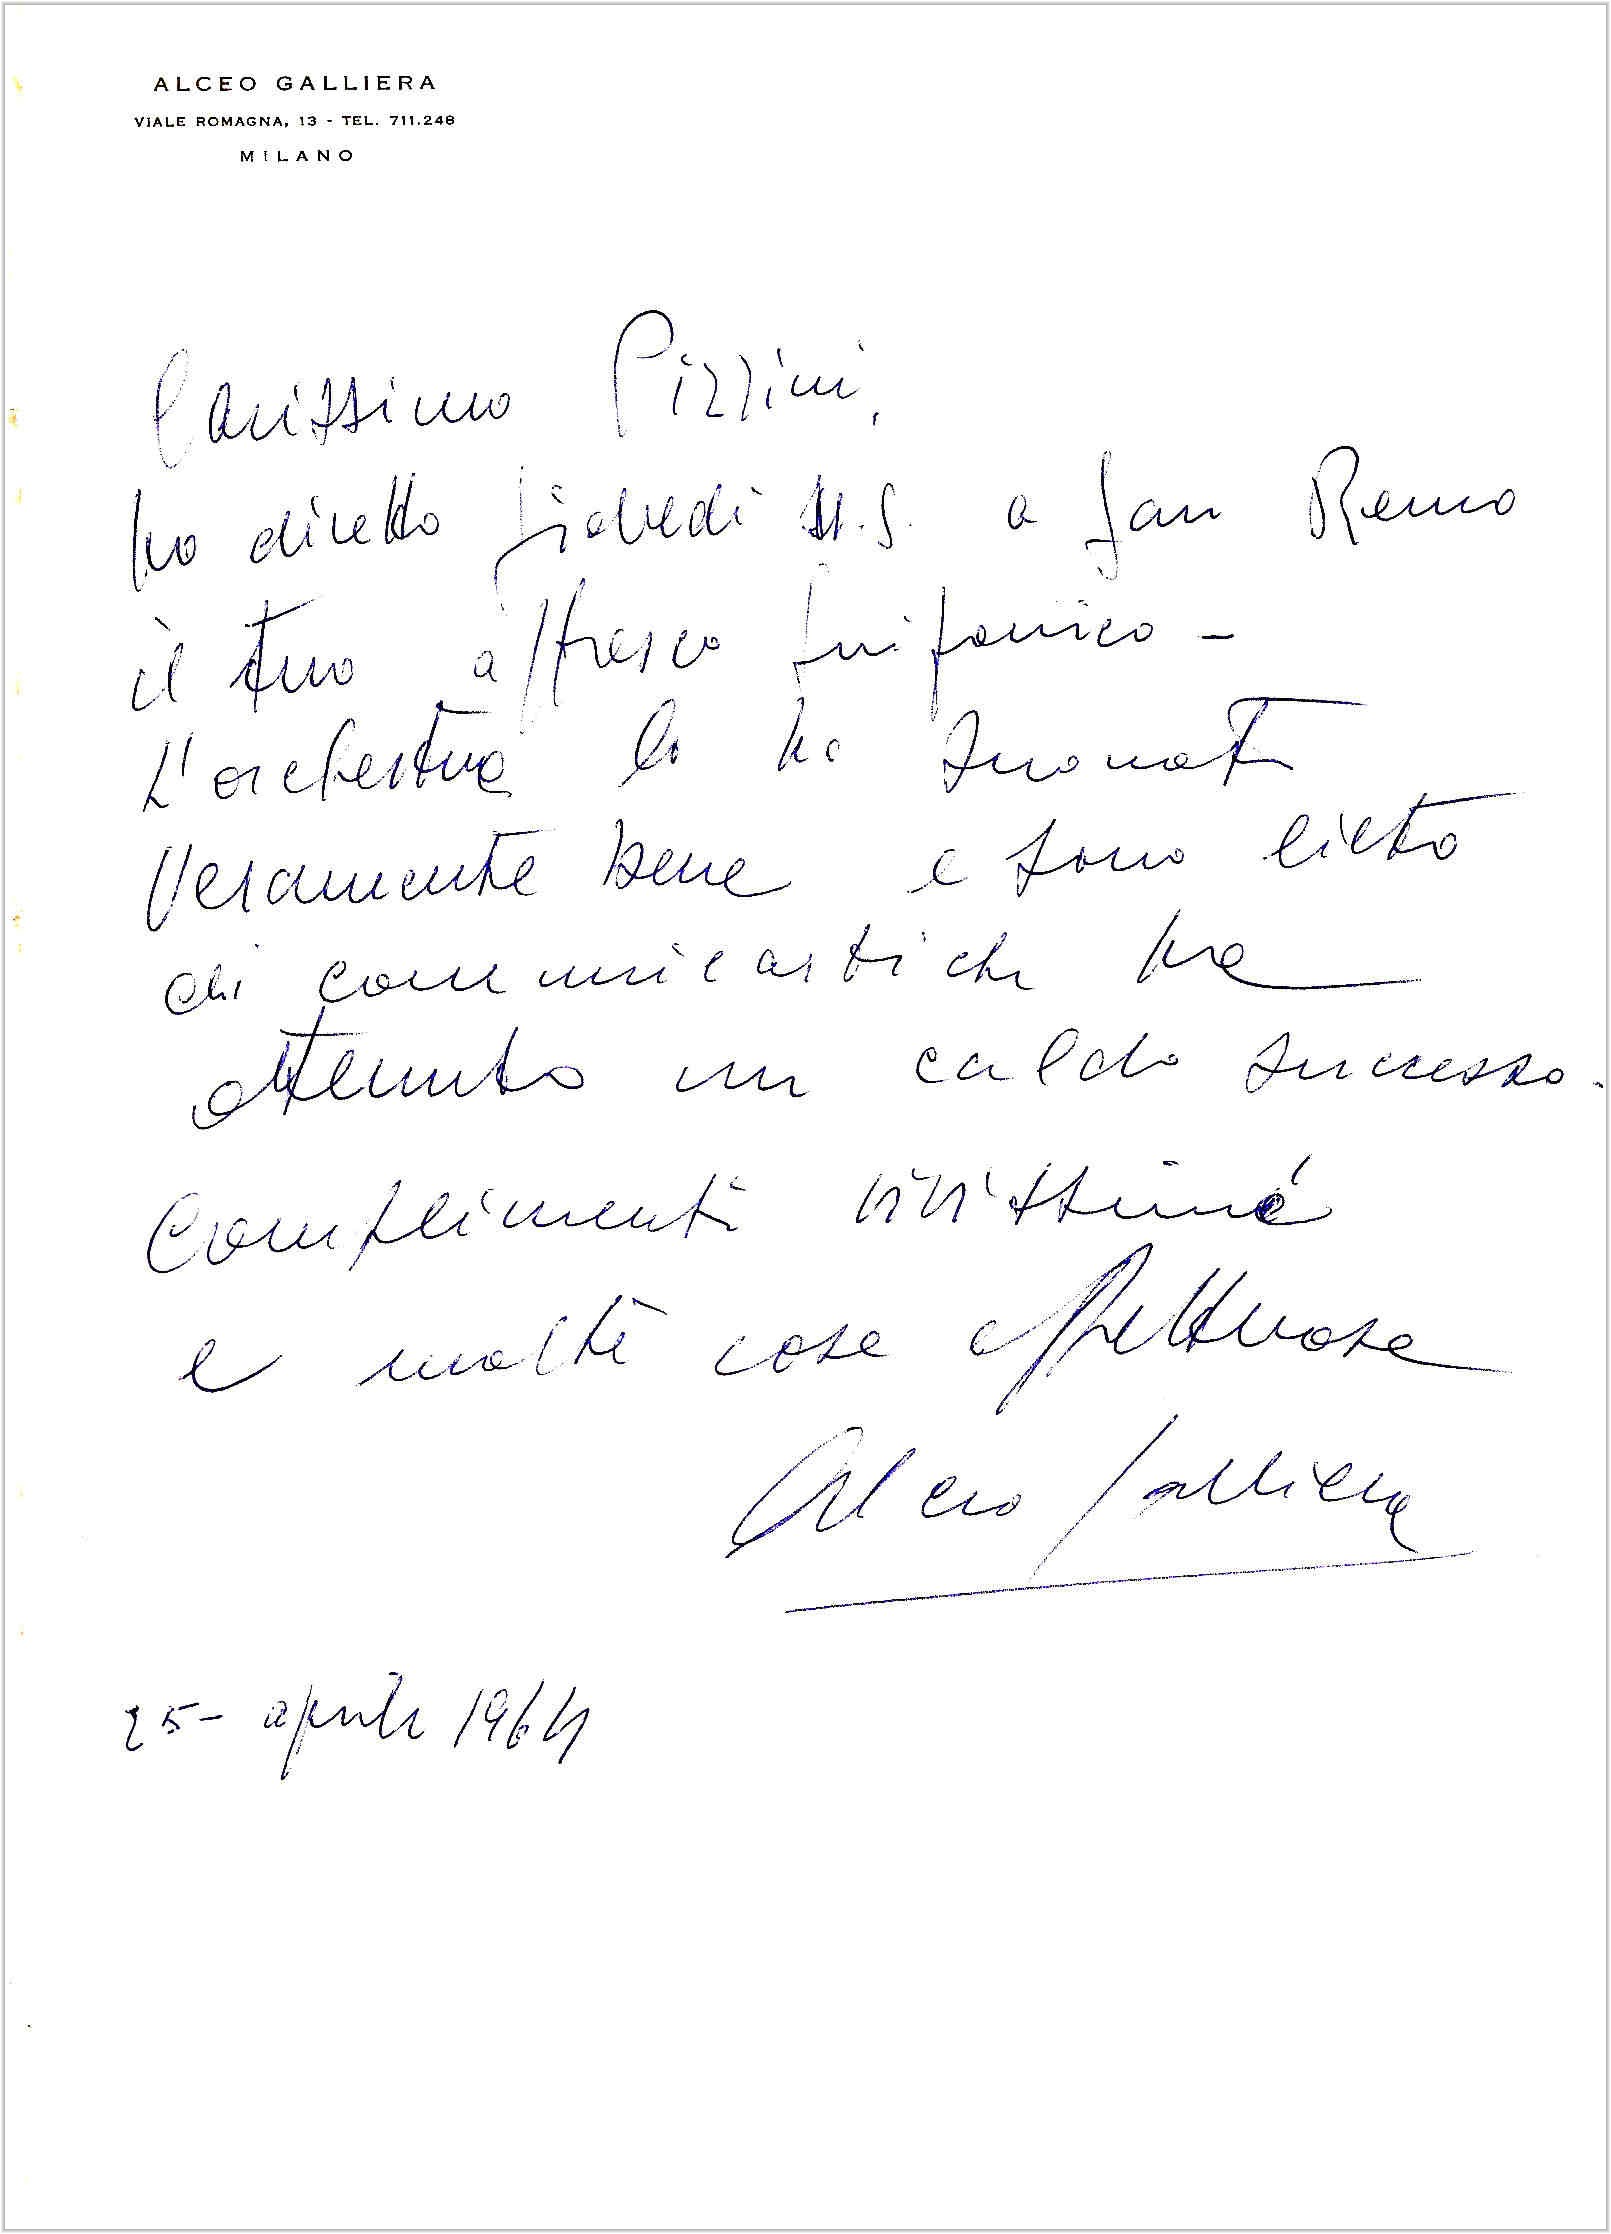 ALCEO GALLIERA
VIALE ROMAGNA, 13 - TEL. 711.248
MILANO
Carissimo Pizzini,
ho diretto giovedì u.s. a San Remo
il tuo affresco sinfonico -
L'orchestra lo ha suonato
veramente bene e sono lieto
di comunicarti che ha
ottenuto un caldo successo.
Complimenti vivissimi
e molte cose affettuose
Alceo Galliera
25 - aprile 1964